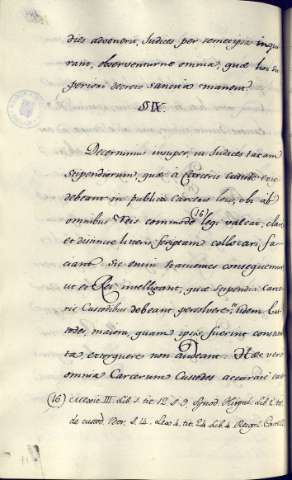 dies advenerit, Judices per semetipsos inqui
rant, observenturne omnia, quæ hoc su
periori decreto sancita manent
§ IX.
Decernimus insuper, ut Judices taxam
stipendiorum, quæ à Carceris esse
debeant in publico carceris loco, ubi ab
omnibus Reis commodè (16) legi valeat, clar
et distincte litteris scriptam collocari fa
ciant. Sic enim sequemur
ut et Rei intelligant, quæ stipendia Carce
ris Custodibus debeant, persolvere; idem Cus
todes, maiora, quam ipsis fuerint constitu
ta, extorquere non audeant. Hæc vero
omnia Carcerum Custodes
(16) Lib. 1. tit. 12. § 9. Synod. Lib. 2. tit.
de custod. Reor. § 14. Lex 4. tit. 24. Lib. 4.